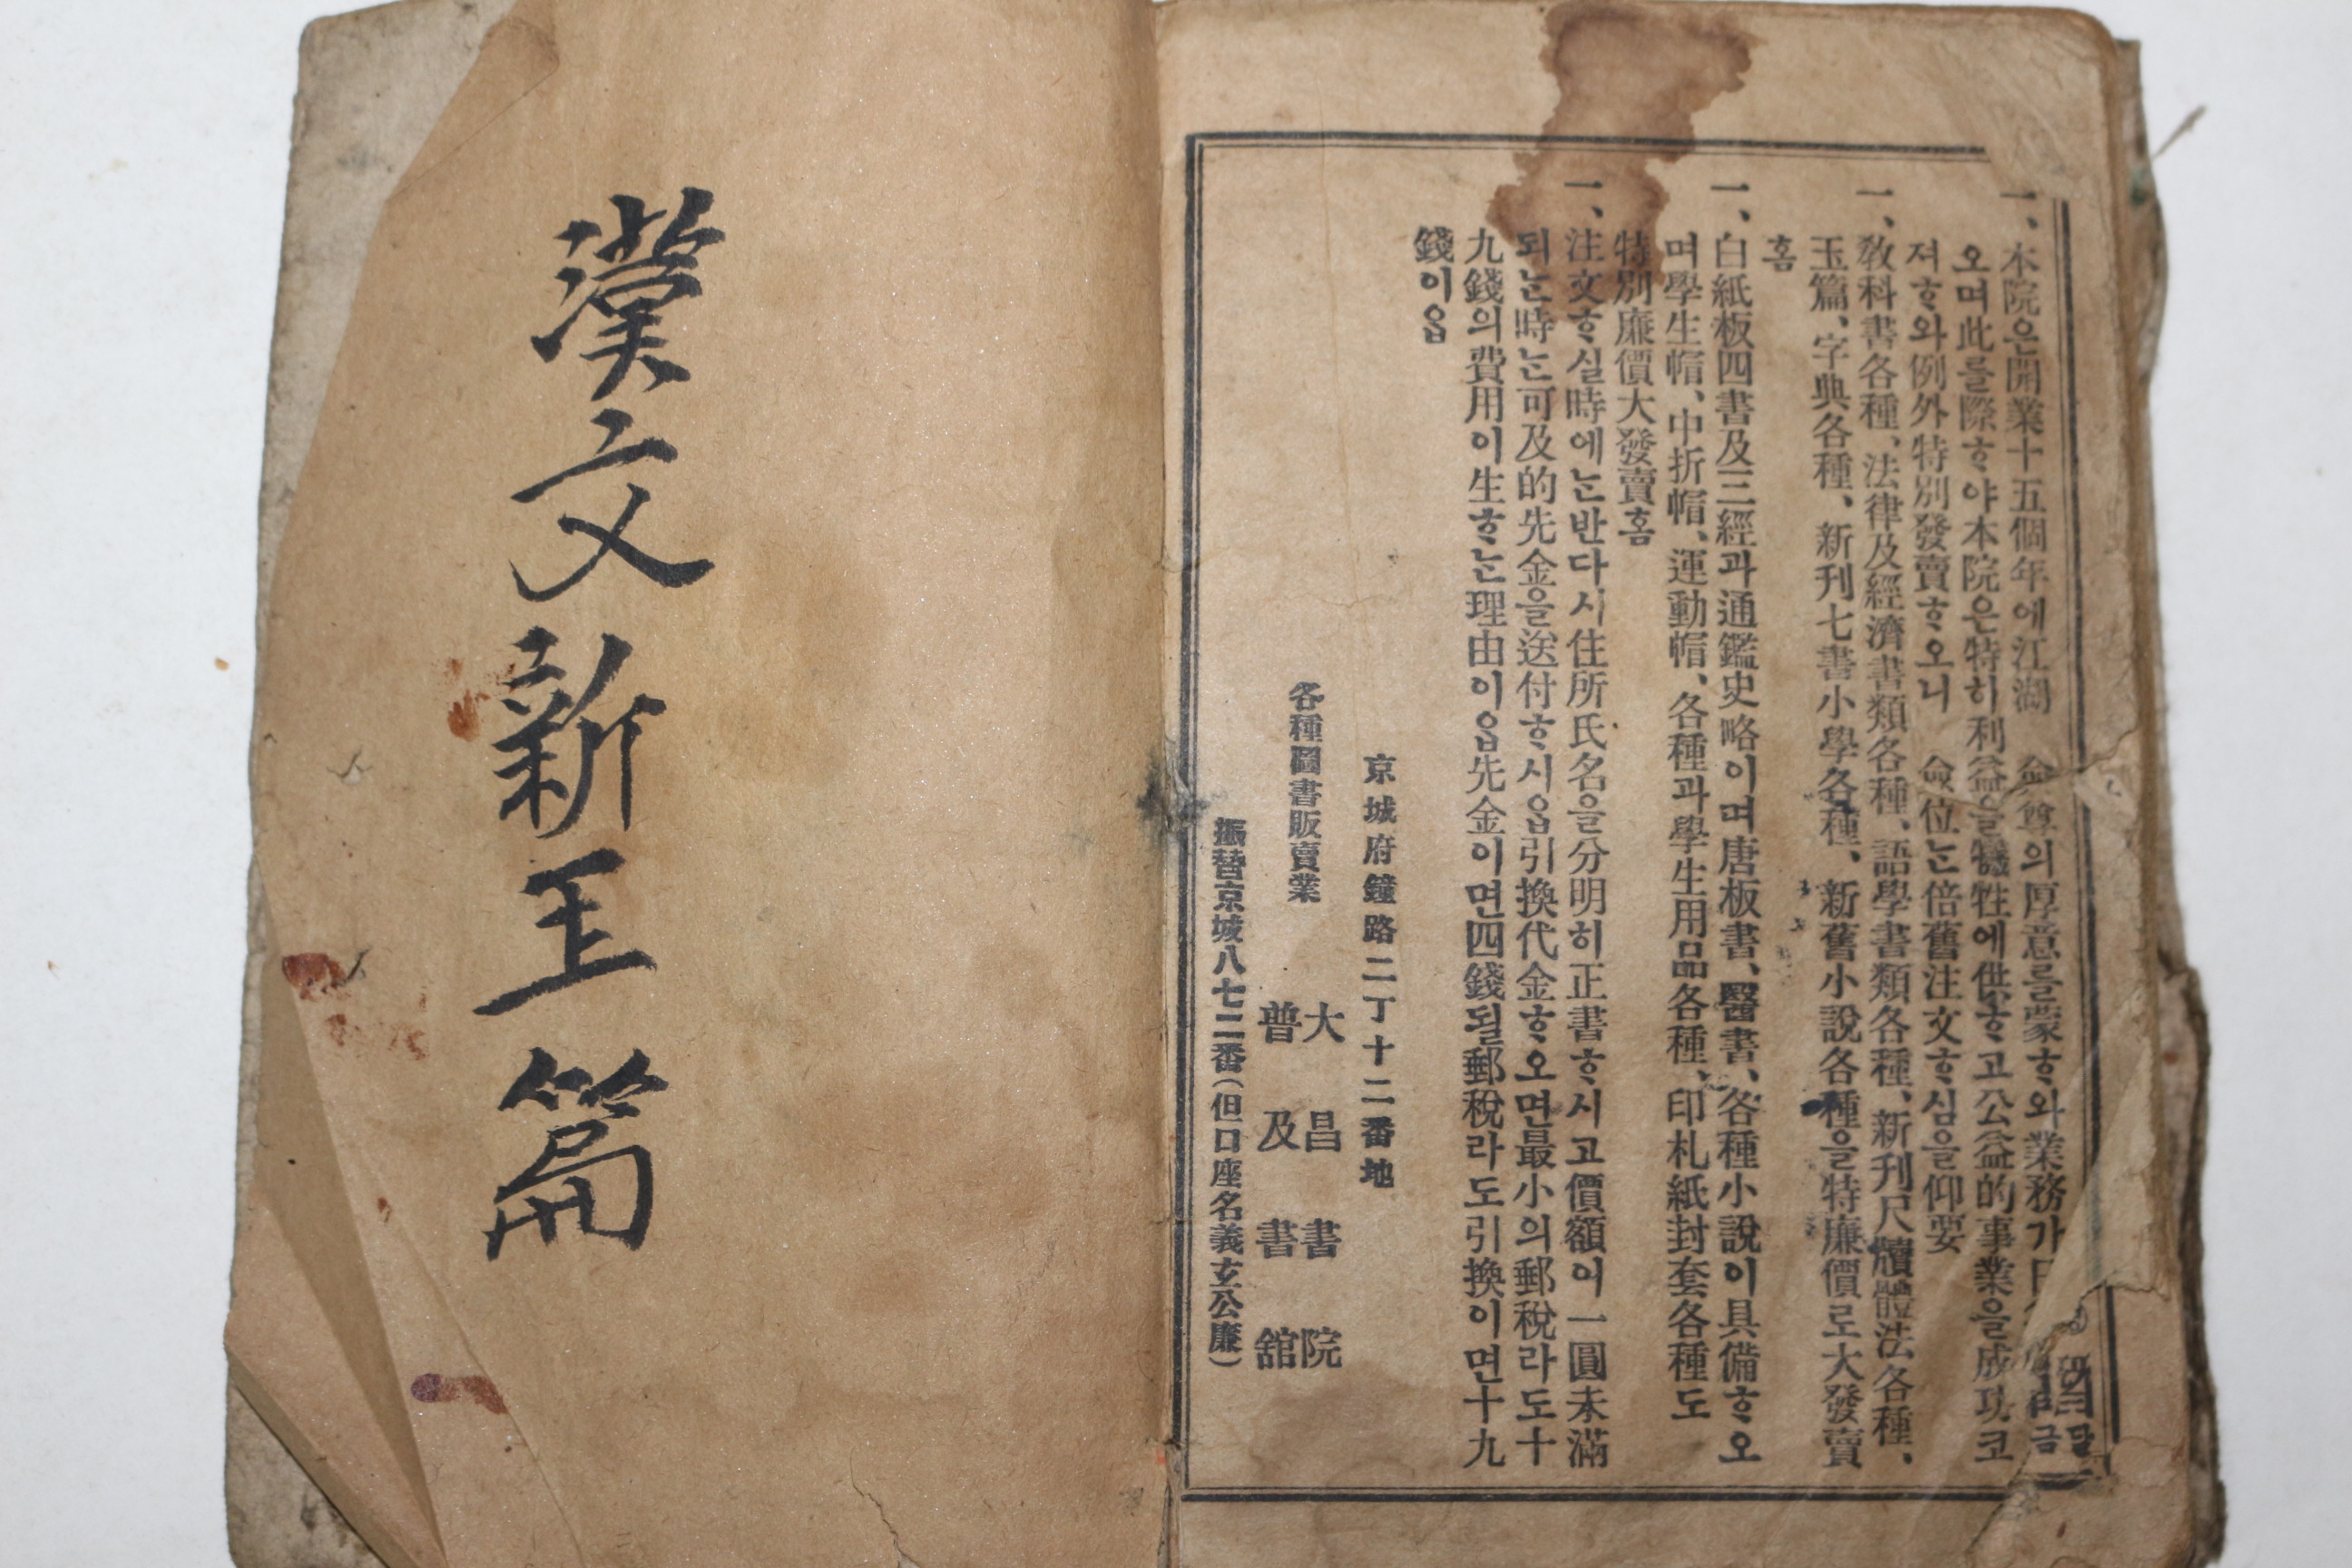 一、本院은開業十五個年에江湖 僉尊의厚意를蒙ᄒᆞ와業務가日
오며此를際ᄒᆞ야本院은特히利益을犧牲에供ᄒᆞ고公益的事業을成功코
져ᄒᆞ와例外特別發賣ᄒᆞ오니 僉位ᄂᆞᆫ倍舊注文ᄒᆞ심을仰要
一、敎科書各種、法律及經濟書類各種、語學書類各種、新刊尺牘體法各種、
玉篇、字典各種、新刊七書小學各種、新舊小說各種을特廉價로大發賣
홈
一、白紙板四書及三經과通鑑史略이며唐板書、醫書、各種小說이具備ᄒᆞ오
며學生帽、中折帽、運動帽、各種과學生用品各種、印札紙封套各種도
特別廉價大發賣홈
一、注文ᄒᆞ실時에ᄂᆞᆫ반다시住所氏名을分明히正書ᄒᆞ시고價額이一圓未滿
되ᄂᆞᆫ時ᄂᆞᆫ可及的先金을送付ᄒᆞ시옵引換代金ᄒᆞ오면最小의郵稅라도十
九錢의費用이生ᄒᆞᄂᆞᆫ理由이옵先金이면四錢될郵稅라도引換이면十九
錢이옵
京城府鐘路二丁十二番地
各種圖書販賣業
大昌書院
普及書舘
振替京城八七二番(但口座名義玄公廉)
漢文新玉篇